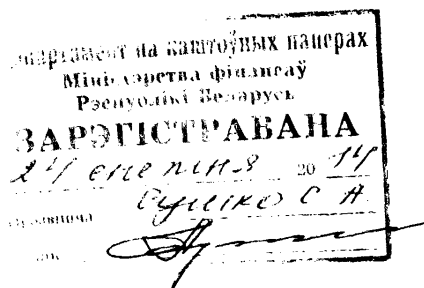 Дэпартамент па каштоўных паперах
Міністэрства фінансаў
Рэспублікі Беларусь
ЗАРЭГІСТРАВАНА
24 20 14
Сушко С А